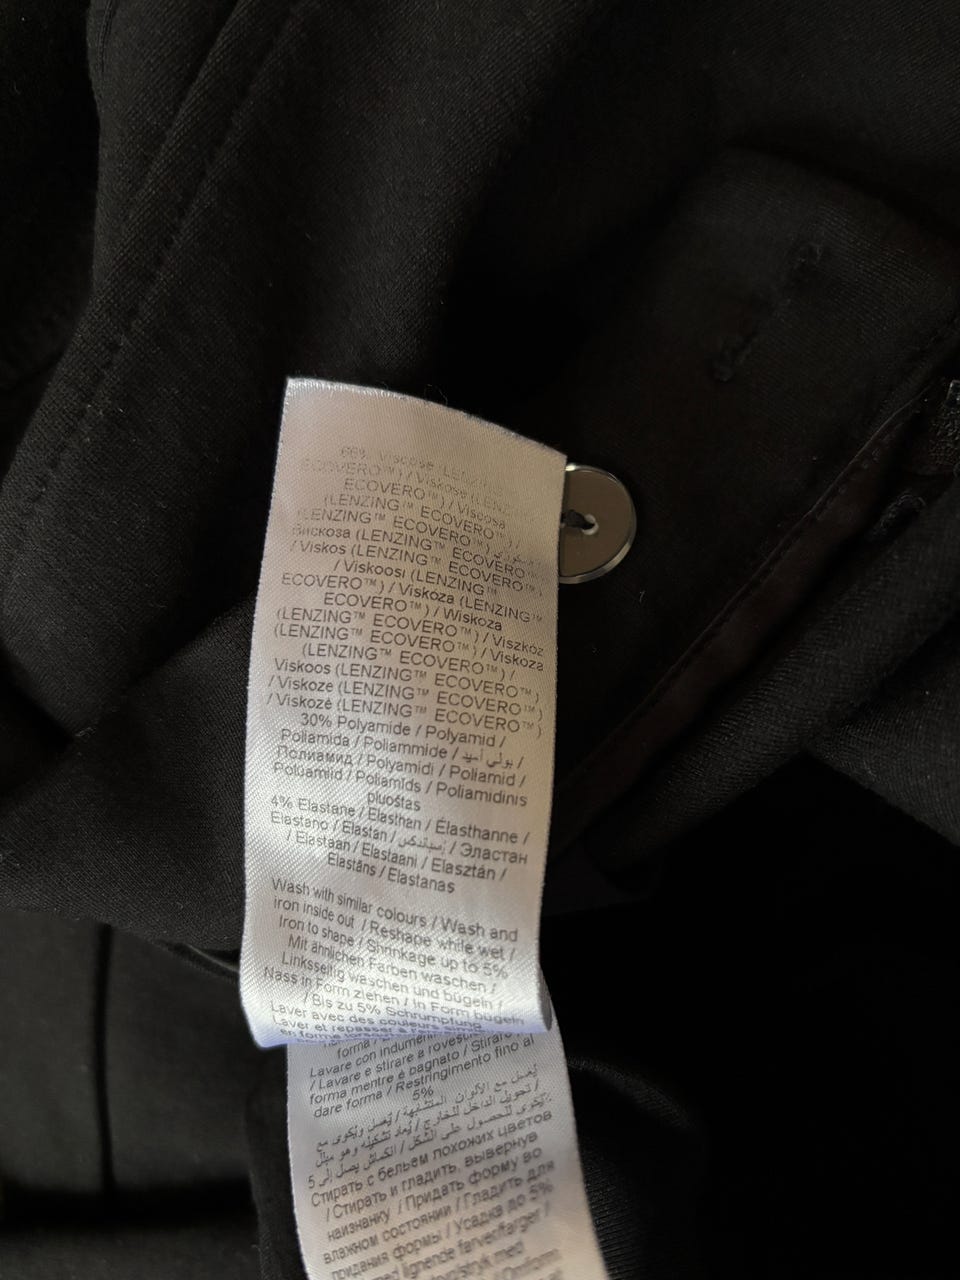 66% Viscose (LENZING™
ECOVERO™) / Viskose (LENZING™
ECOVERO™) / Viscosa
(LENZING™ ECOVERO™) /
(LENZING™ ECOVERO™)
Вискоза (LENZING™ ECOVERO™)
/ Viskos (LENZING™ ECOVERO™)
/ Viskoosi (LENZING™
ECOVERO™) / Viskóza (LENZING™
ECOVERO™) / Wiskoza
(LENZING™ ECOVERO™) / Viszkóz
(LENZING™ ECOVERO™) / Viskoza
(LENZING™ ECOVERO™) /
Viskoos (LENZING™ ECOVERO™)
/ Viskoze (LENZING™ ECOVERO™)
/ Viskozė (LENZING™ ECOVERO™)
30% Polyamide / Polyamid /
Poliamida / Poliammide / بولي أميد /
Полиамид / Polyamidi / Poliamid /
Polüamiid / Poliamīds / Poliamidinis
pluoštas
4% Elastane / Elasthan / Élasthanne /
Elastano / Elastan / / Эластан
/ Elastaan / Elastaani / Elasztán /
Elastāns / Elastanas
Wash with similar colours / Wash and
iron inside out / Reshape while wet /
Iron to shape / Shrinkage up to 5%
Mit ähnlichen Farben waschen /
Linksseitig waschen und bügeln /
Nass in Form ziehen / In Form bügeln
/ Bis zu 5% Schrumpfung
Laver avec des couleurs
Laver et repasser à
en forme
forma /
Lavare con indumenti
/ Lavare e stirare a rovescio
forma mentre è bagnato / Stirare
dare forma / Restringimento fino al
5%
تُغسل مع الألوان المتشابهة / تُغسل وتُكوى مع
تحويل الداخل للخارج / يُعاد تشكيله وهو مبتل /
يُكوى للحصول على الشكل / انكماش يصل إلى 5٪
Стирать с бельем похожих цветов
/ Стирать и гладить, вывернув
наизнанку / Придать форму во
влажном состоянии / Гладить для
придания формы / Усадка до 5%
med lignende farver/farger /